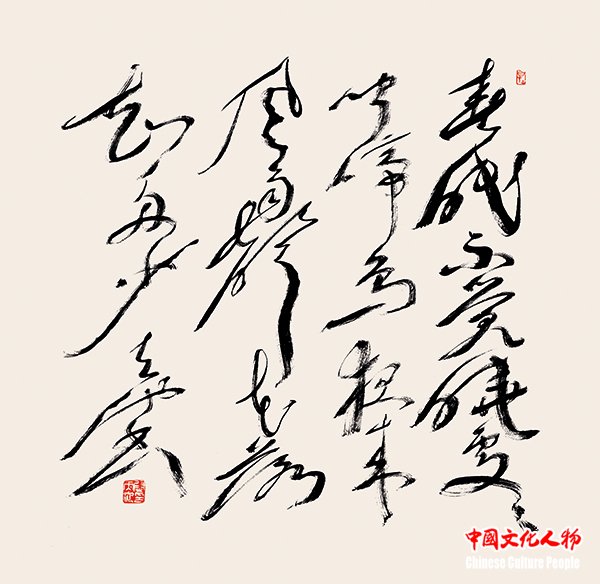 春眠不覺曉處々
聞啼鳥夜来
風雨聲花落
知多少
中國文化人物
Chinese Culture People